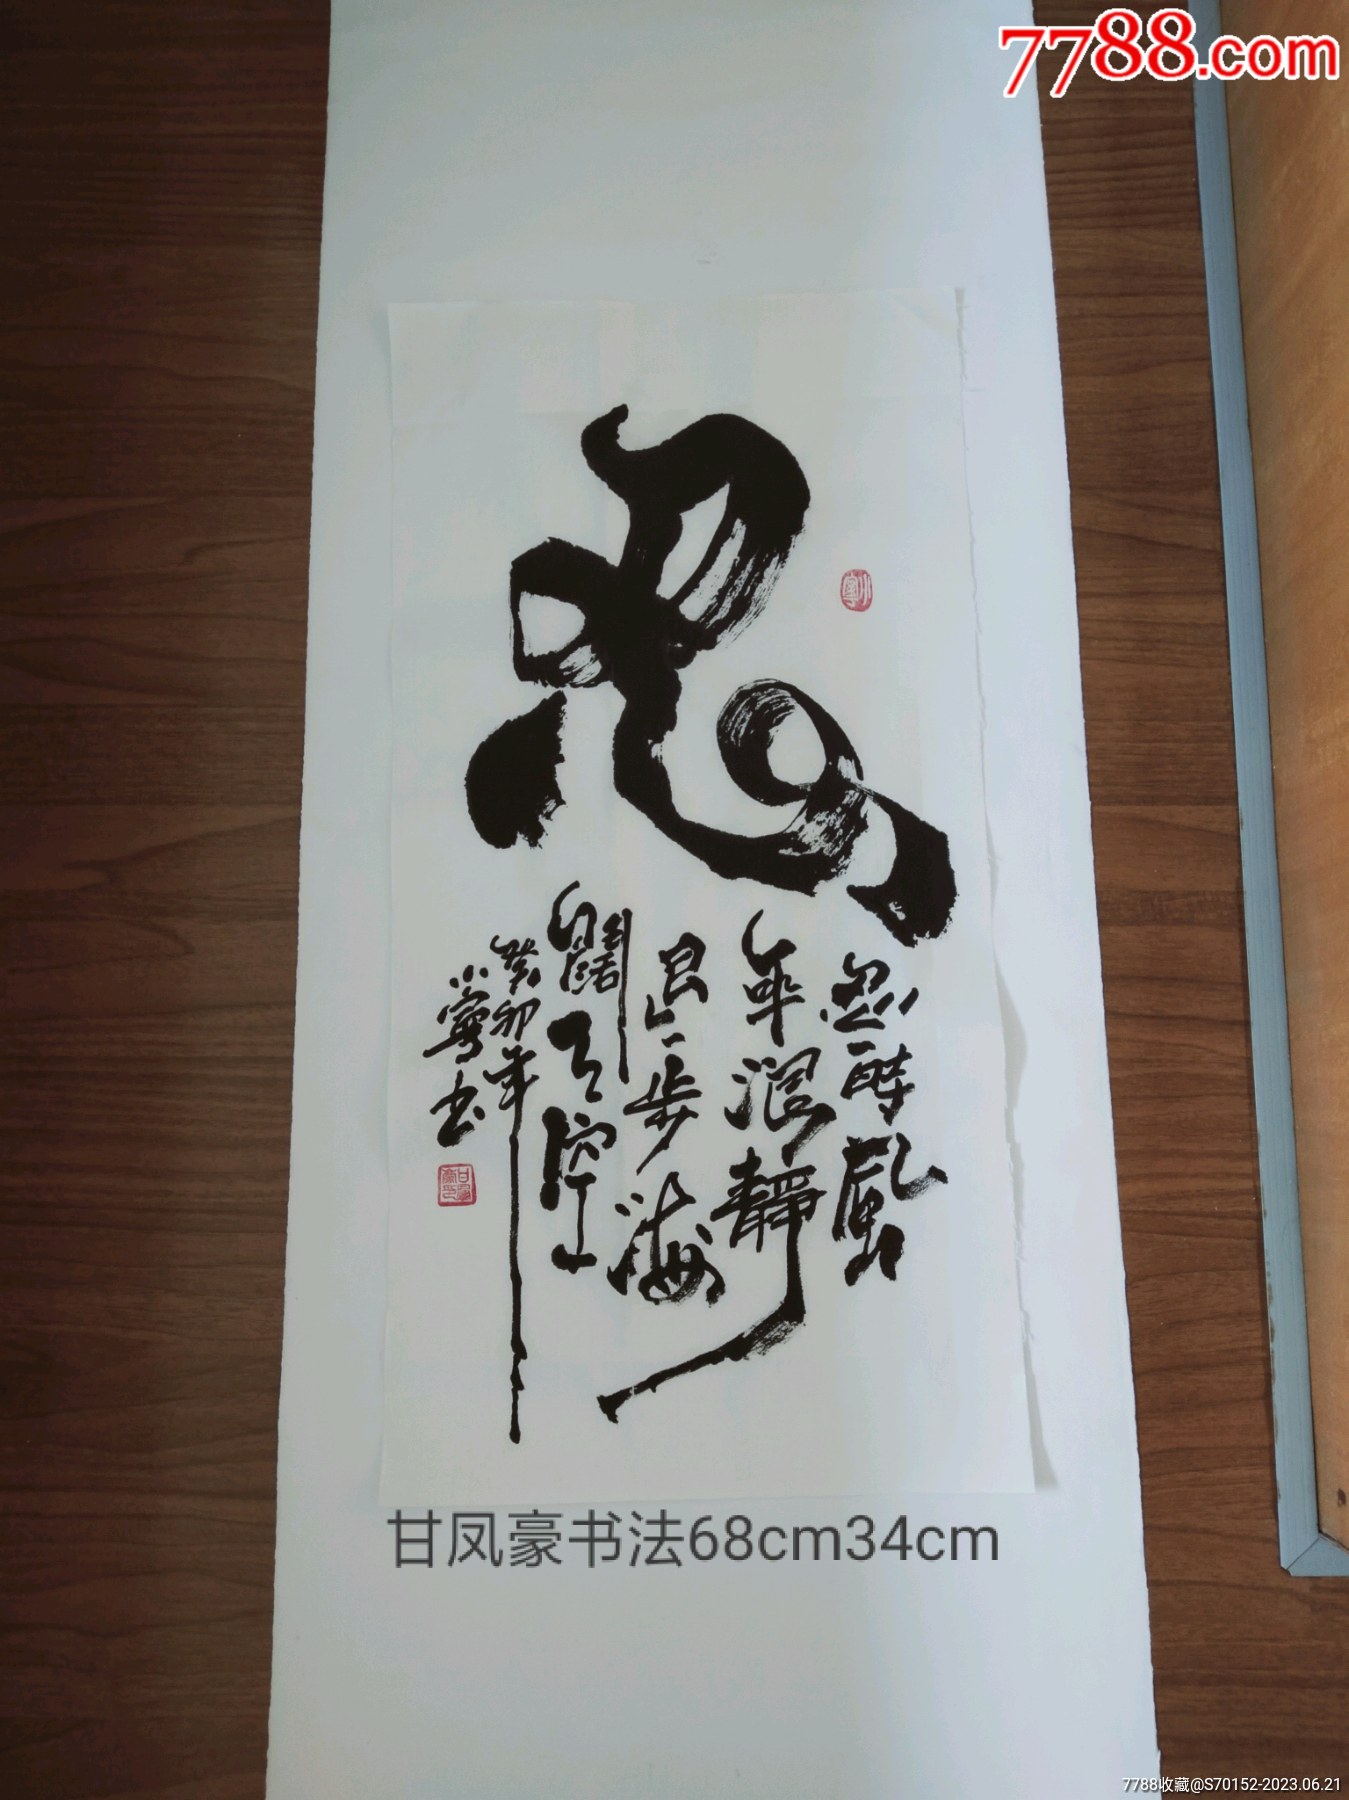 7788.com
忍
忍一時風
平浪靜
退一步海
闊天空
癸卯年
小寧書
甘凤豪书法68cm34cm
7788收藏@S70152-2023.06.21